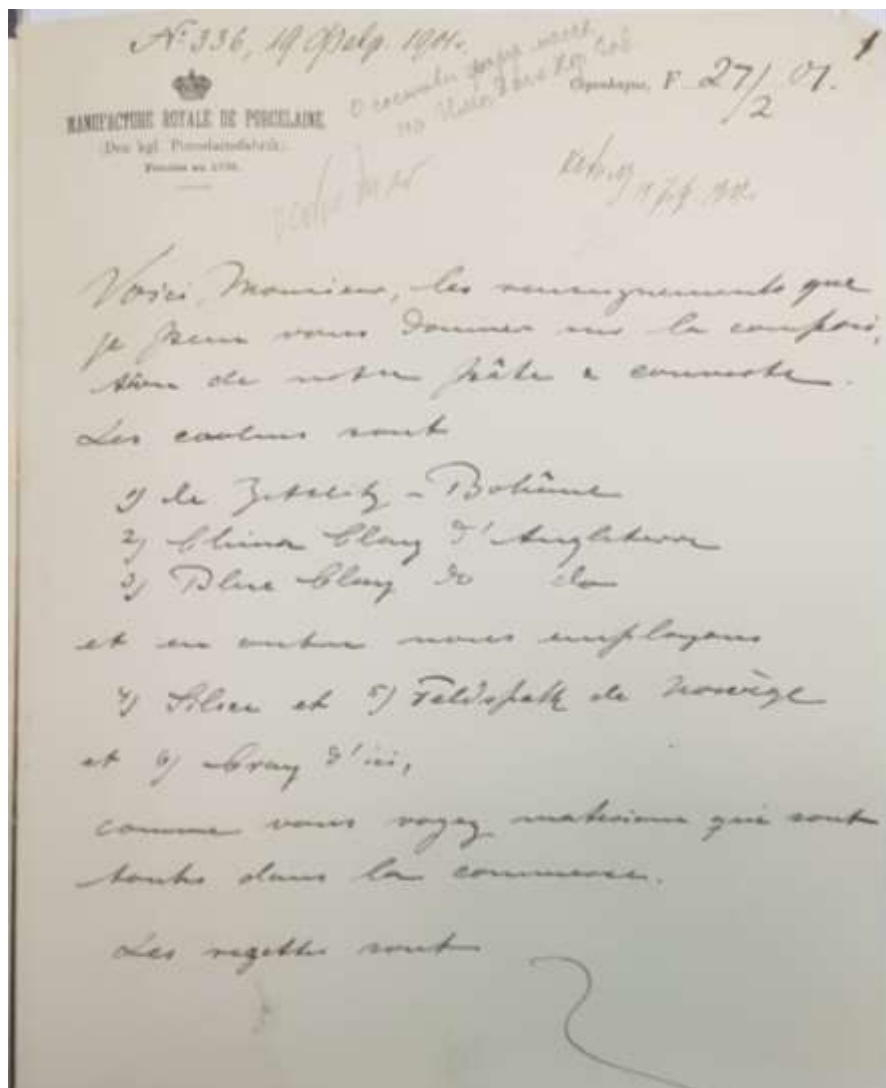 № 336, 19 Февр. 1901.
О составе фарф. массы
Copenhague, F 27/2 01.
MANUFACTURE ROYALE DE PORCELAINE.
(Den kgl. Porcelainsfabrik).
Voici Monsieur, les renseignements que
je peux vous donner sur la composi-
tion de notre pâte & couverte.
Les caolins sont
1) de Zettlitz - Bohême
2) China Clay d'Angleterre
3) Blue Clay do do
et en outre nous employons
4) Silex et 5) Feldspath de Norvège
et 6) Cray d'ici,
comme vous voyez matériaux qui sont
touts dans la commerse.
Les regettes sont